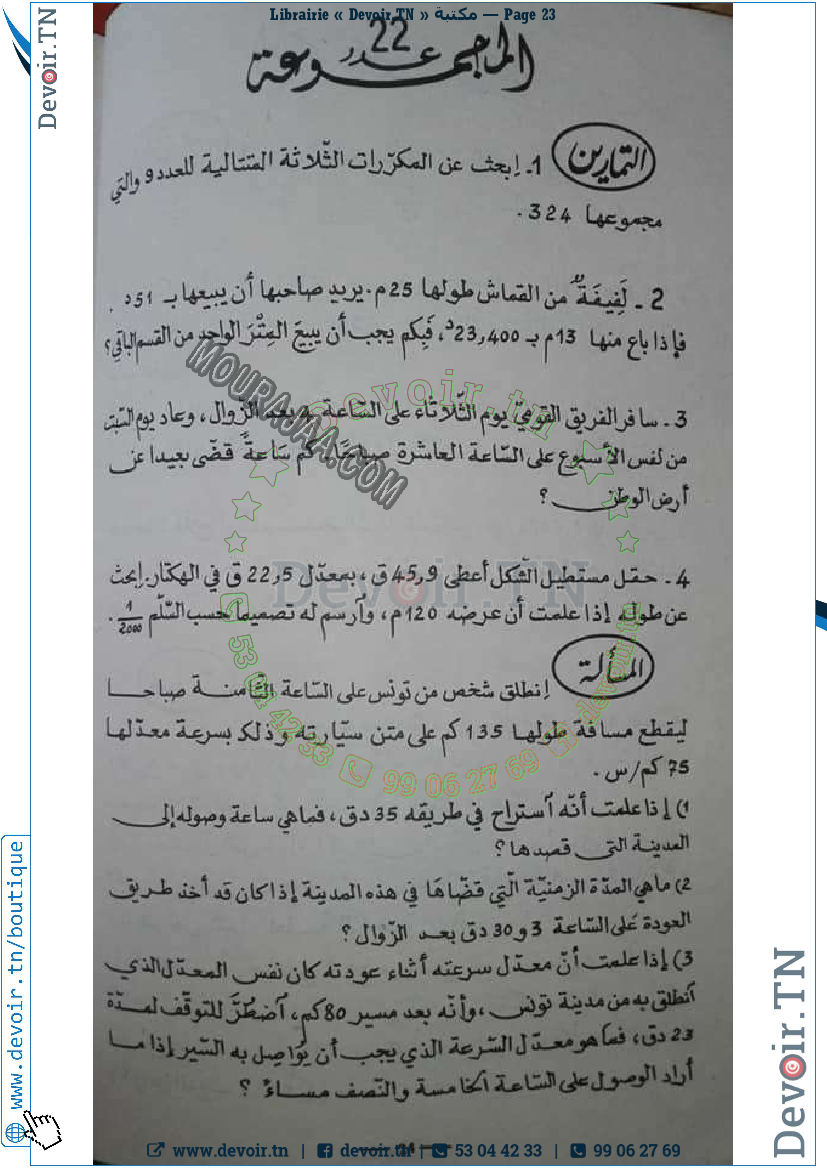 Librairie « Devoir.TN » مكتبة — Page 23
Devoir.TN
المجموعة عدد 22
التمارين
1. إبحث عن المكرّرات الثّلاثة المتتالية للعدد 9 والتي
مجموعها 324.
2 - لَفِيفَةٌ من القماش طولها 25م. يريد صاحبها أن يبيعها بـ 51د.
فإذا باع منها 13م بـ 23,400د، فَبِكم يجب أن يبيعَ المِتْرَ الواحد من القسم الباقي؟
3 - سافر الفريق القوميّ يوم الثّلاثاء على السّاعة بعد الزّوال، وعاد يوم السّبت
من نفس الأسبوع على السّاعة العاشرة صباحًا. كم سَاعةً قضّى بعيدا عن
أرض الوطن؟
4 - حقل مستطيل الشّكل أعطى 45,9 ق، بمعدّل 22,5 ق في الهكتار. إبحث
عن طوله إذا علمت أن عرضه 120م، وآرسم له تصميما حسب السّلّم 1/2000.
المسألة
إنطلق شخص من تونس على السّاعة الثّامنة صباحا
ليقطع مسافة طولها 135 كم على متن سيّارته وذلك بسرعة معدّلها
75 كم/س.
1) إذا علمت أنّه آستراح في طريقه 35 دق، فما هي ساعة وصوله إلى
المدينة التي قصدها؟
2) ما هي المدّة الزمنيّة الّتي قضّاهَا في هذه المدينة إذا كان قد أخذ طريق
العودة عَلى السّاعة 3 و30 دق بعد الزّوال؟
3) إذا علمت أنّ معدّل سرعته أثناء عودته كان نفس المعدّل الذي
آنطلق به من مدينة تونس، وأنّه بعد مسير 80 كم، آضطُرَّ للتوقّف لمدّة
23 دق، فما هو معدّل السّرعة الذي يجب أن يُوَاصِل به السّير إذا ما
أراد الوصول على السّاعة الخامسة والنّصف مساءً؟
MOURAJAA.COM
Devoir.tn
Devoir.TN
53 04 42 33
99 06 27 69
www.devoir.tn/boutique
Devoir.TN
www.devoir.tn | devoir.tn | 53 04 42 33 | 99 06 27 69